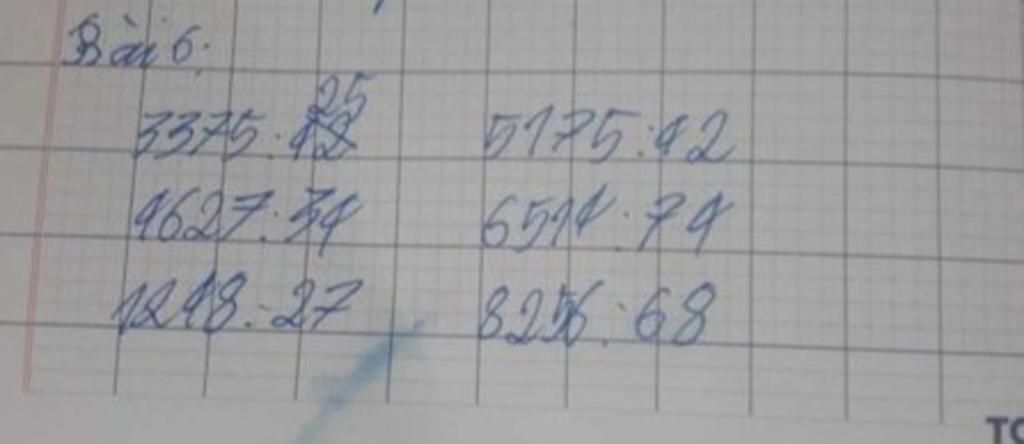 Bài 6:
25
3375:42 5175:42
4627:34 6514:74
1248:27 8256:68
TO